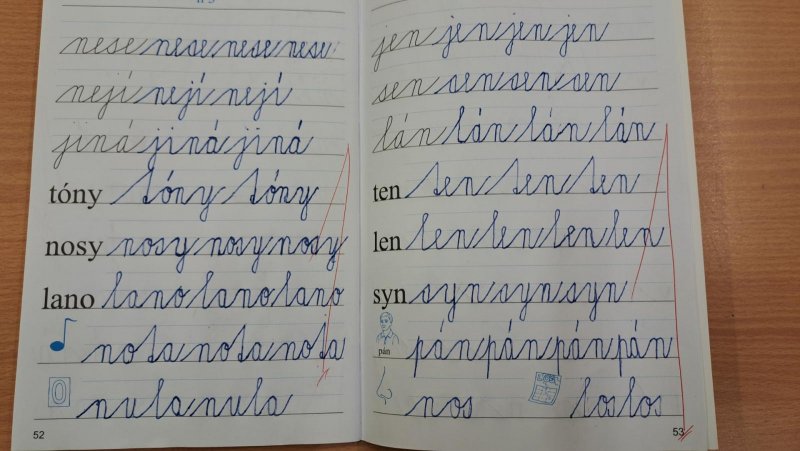 nese nese nese nese
nejí nejí nejí
jiná jiná jiná
tóny tóny tóny
nosy nosy nosy nosy
lano lano lano lano
nota nota nota
nula nula
52
jen jen jen jen
sen sen sen sen
lán lán lán lán
ten ten ten ten
len len len len len
syn syn syn syn
pán pán pán pán pán
nos los los
53